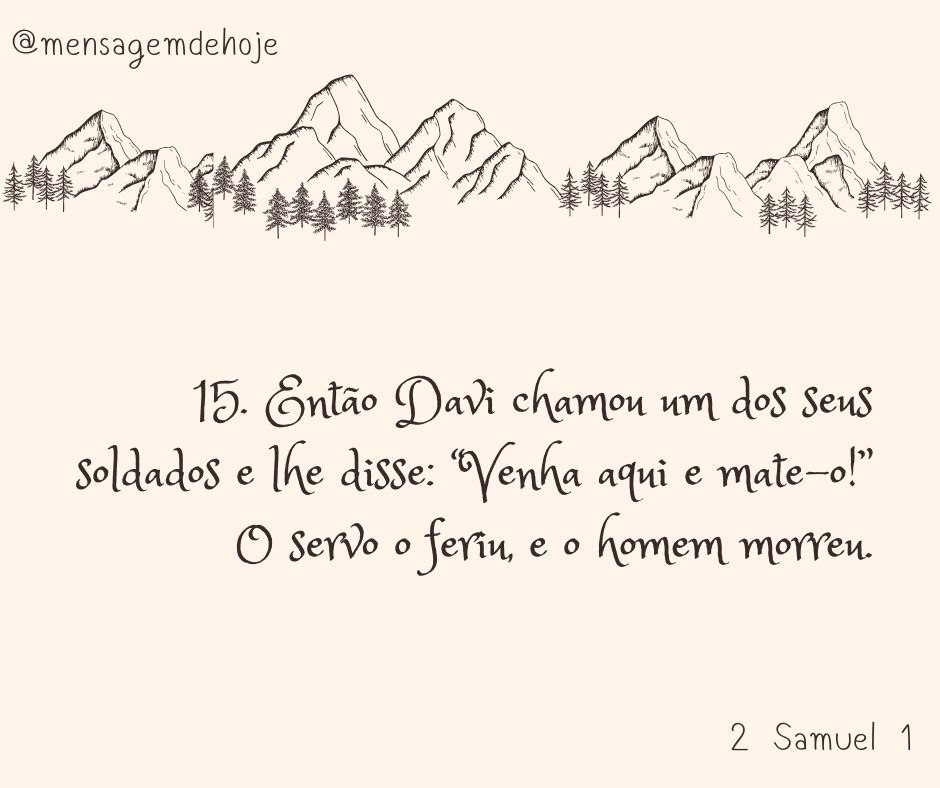 @mensagemdehoje
15. Então Davi chamou um dos seus
soldados e lhe disse: “Venha aqui e mate-o!”
O servo o feriu, e o homem morreu.
2 Samuel 1